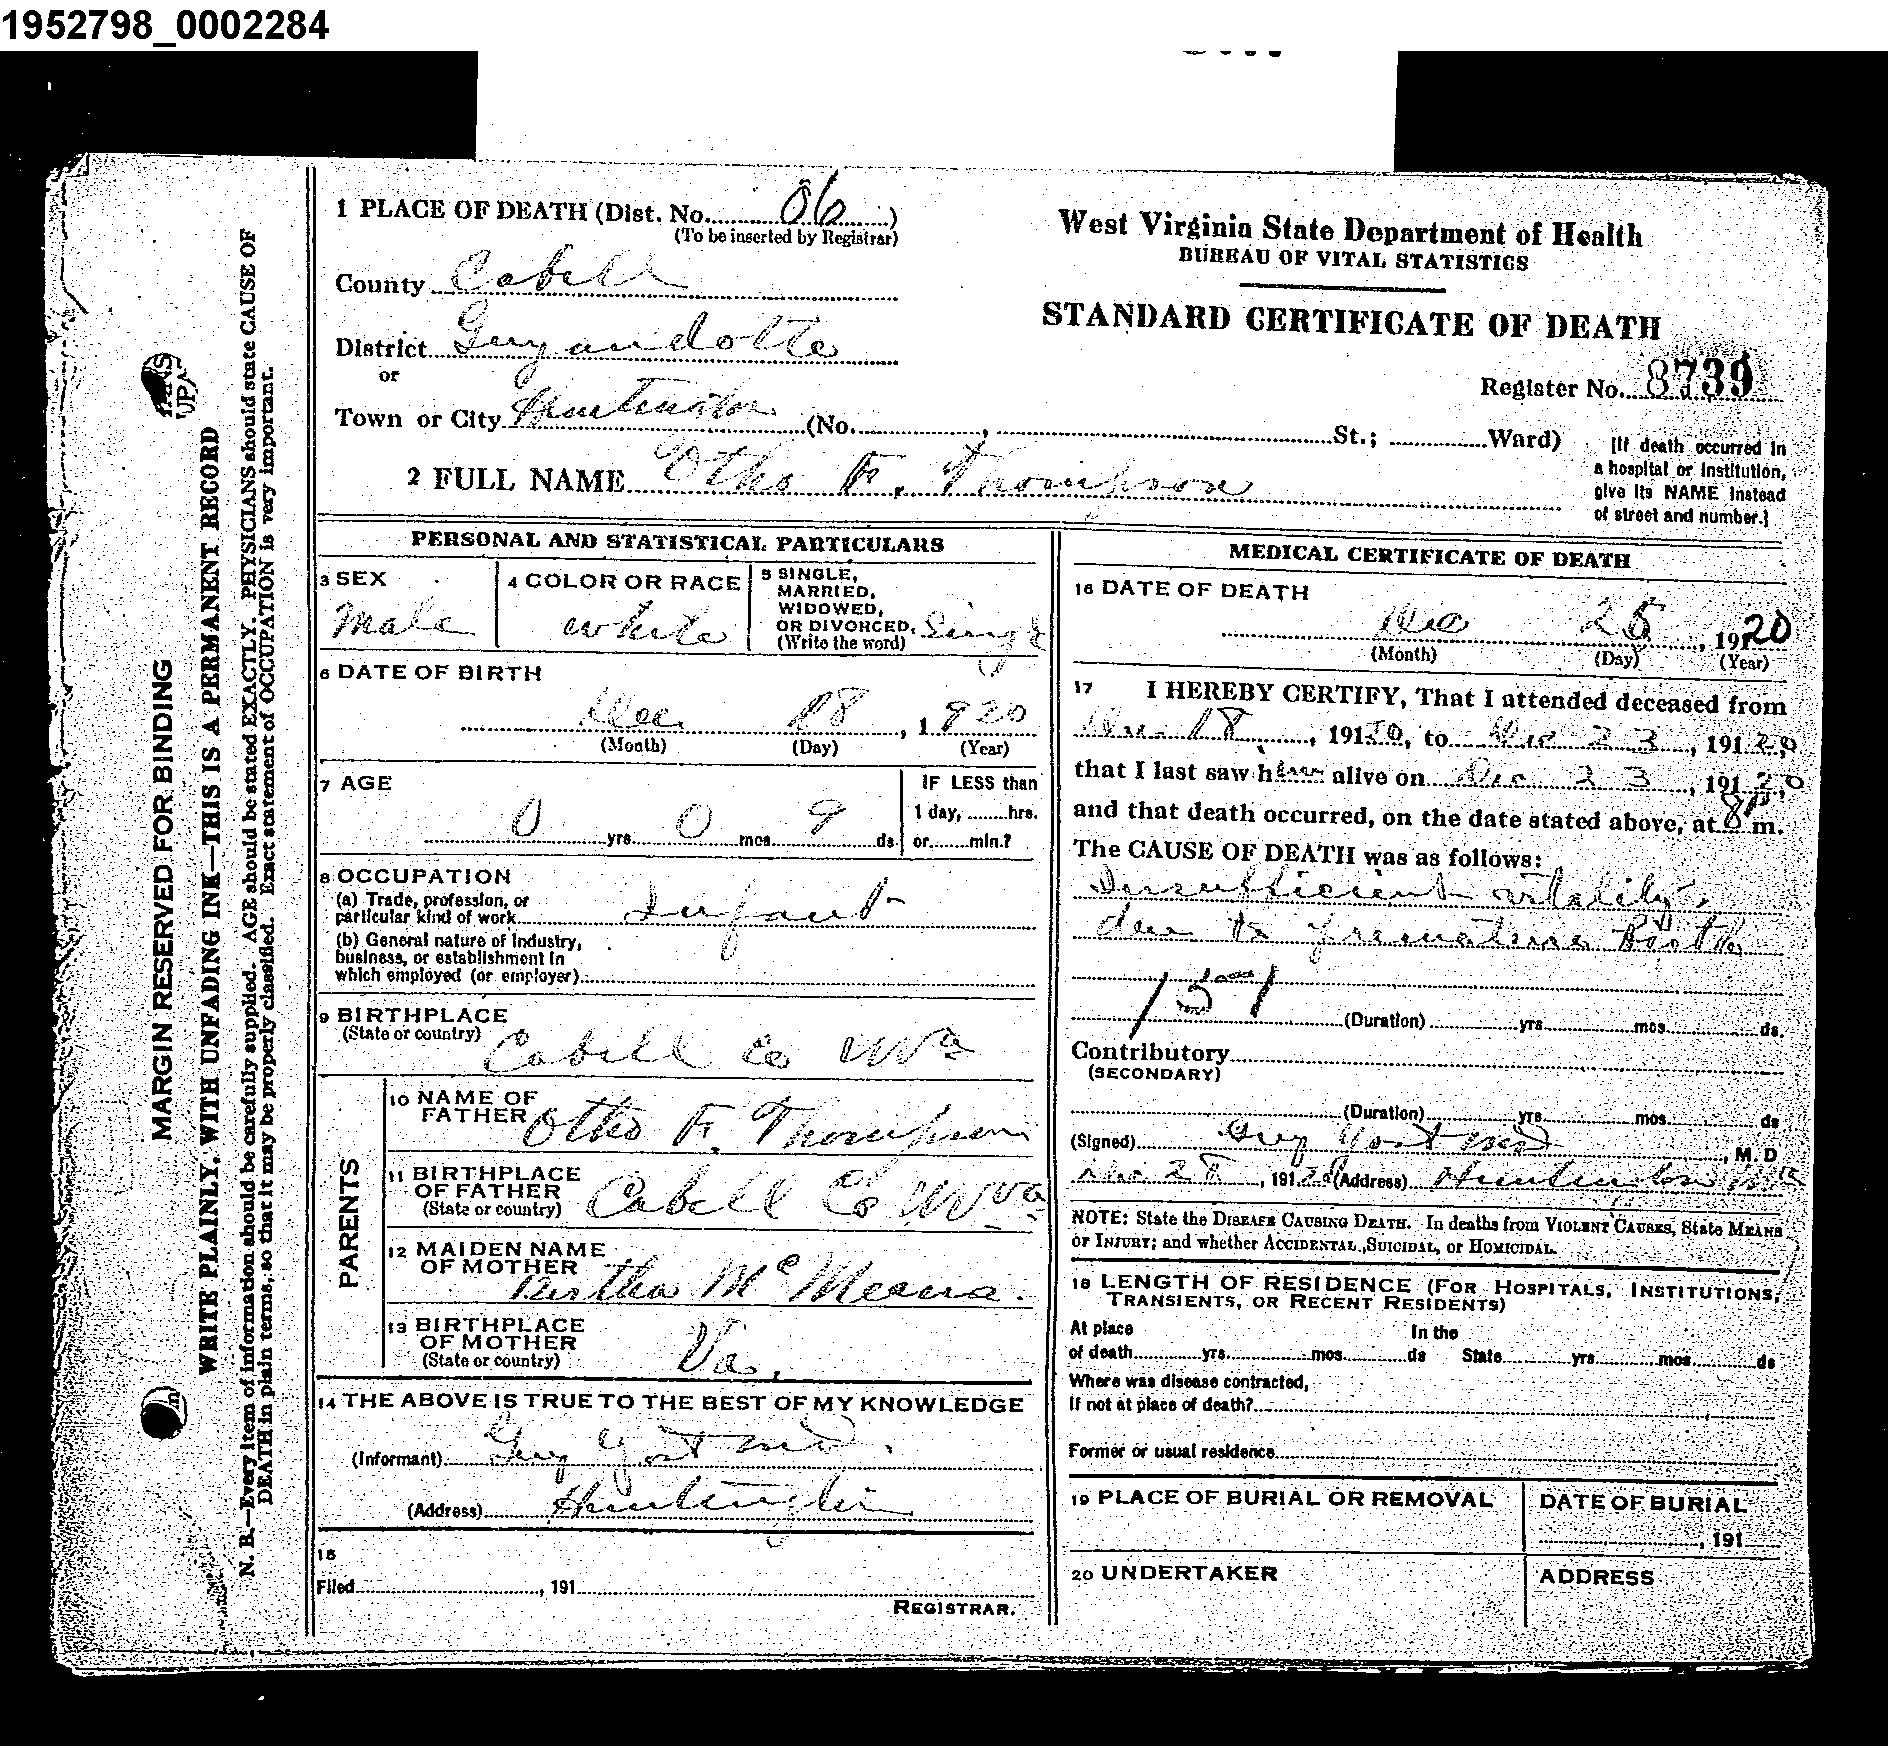 1952798_0002284
1 PLACE OF DEATH (Dist. No. 06 )
(To be inserted by Registrar)
County Cabell
District Guyandotte
or
Town or City Huntington (No. , St.; Ward)
West Virginia State Department of Health
BUREAU OF VITAL STATISTICS
STANDARD CERTIFICATE OF DEATH
Register No. 8739
[If death occurred in
a hospital or institution,
give its NAME instead
of street and number.]
2 FULL NAME Otho F. Thompson
MARGIN RESERVED FOR BINDING
WRITE PLAINLY, WITH UNFADING INK—THIS IS A PERMANENT RECORD
N. B.—Every item of information should be carefully supplied. AGE should be stated EXACTLY. PHYSICIANS should state CAUSE OF
DEATH in plain terms, so that it may be properly classified. Exact statement of OCCUPATION is very important.
PERSONAL AND STATISTICAL PARTICULARS
3 SEX
Male
4 COLOR OR RACE
White
5 SINGLE,
MARRIED,
WIDOWED,
OR DIVORCED.
(Write the word) Single
6 DATE OF BIRTH
Dec 18, 1920
(Month) (Day) (Year)
7 AGE
0 yrs. 0 mos. 9 ds.
IF LESS than
1 day, hrs.
or min.?
8 OCCUPATION
(a) Trade, profession, or
particular kind of work Infant
(b) General nature of industry,
business, or establishment in
which employed (or employer)
9 BIRTHPLACE
(State or country) Cabell Co WVa
PARENTS
10 NAME OF
FATHER Otho F. Thompson
11 BIRTHPLACE
OF FATHER
(State or country) Cabell Co WVa
12 MAIDEN NAME
OF MOTHER
Bertha McMeans.
13 BIRTHPLACE
OF MOTHER
(State or country) Va.
14 THE ABOVE IS TRUE TO THE BEST OF MY KNOWLEDGE
(Informant) Guy Yost MD.
(Address) Huntington
15
Filed , 191
REGISTRAR.
MEDICAL CERTIFICATE OF DEATH
16 DATE OF DEATH
Dec , 1920
(Month) (Day) (Year)
17 I HEREBY CERTIFY, That I attended deceased from
Dec 18, 19120, to Dec 23, 19120
that I last saw him alive on Dec 23, 19120
and that death occurred, on the date stated above, at 8P m.
The CAUSE OF DEATH was as follows:
Insufficient vitality,
due to premature Birth
151
(Duration) yrs. mos. ds.
Contributory
(SECONDARY)
(Duration) yrs. mos. ds
(Signed) Guy Yost MD, M. D
Dec 28, 19120 (Address) Huntington WVa
NOTE: State the DISEASE CAUSING DEATH. In deaths from VIOLENT CAUSES, State MEANS
OF INJURY; and whether ACCIDENTAL, SUICIDAL, or HOMICIDAL.
18 LENGTH OF RESIDENCE (FOR HOSPITALS, INSTITUTIONS,
TRANSIENTS, OR RECENT RESIDENTS)
At place In the
of death yrs. mos. ds State yrs. mos. ds
Where was disease contracted,
If not at place of death?
Former or usual residence
19 PLACE OF BURIAL OR REMOVAL
DATE OF BURIAL
, 191
20 UNDERTAKER
ADDRESS